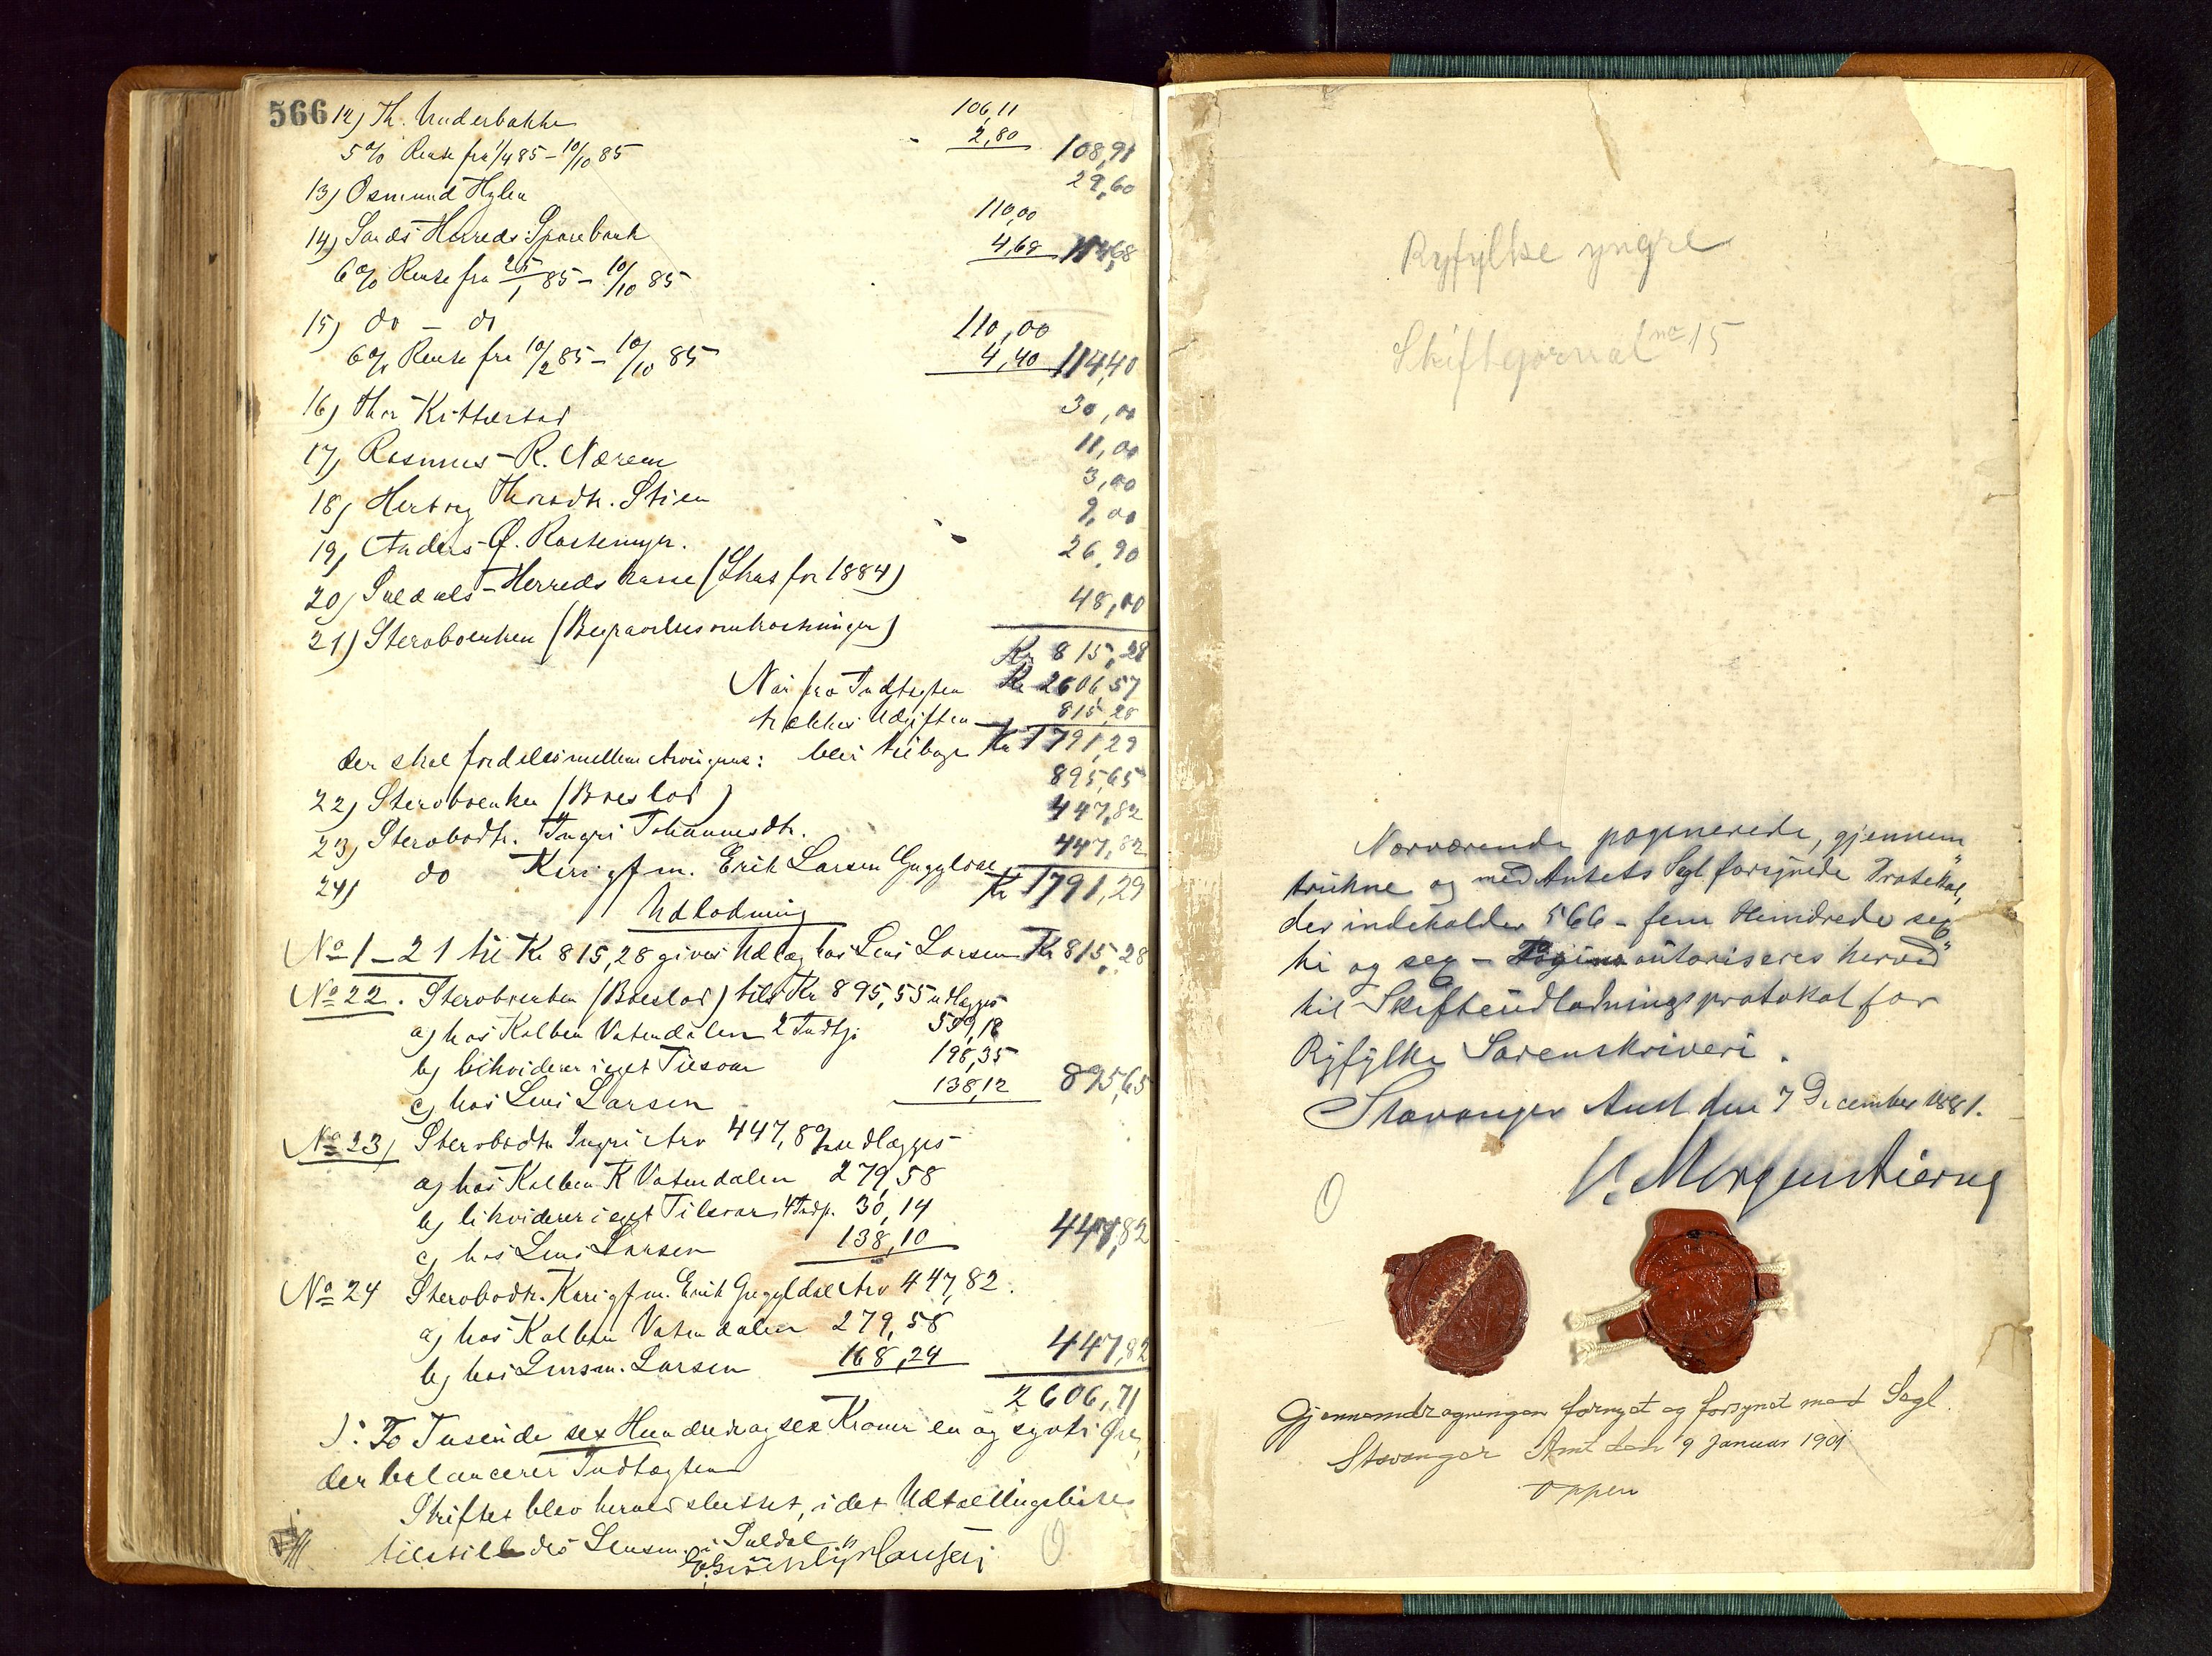 566 12) Th. Underbakke 106,11
5% Rente fra 1/4 85 – 10/10 85 2,80 108,91
13) Osmund Hylen 29,60
14) Sands Herreds Sparebank 110,00
6% Rente fra 25/1 85 – 10/10 85 4,68 114,68
15) do – do 110,00
6% Rente fra 10/2 85 – 10/10 85 4,40 114,40
16) Thor 30,00
17) Rasmus R. Nærem 11,00
18) Herborg Thorsdtr. Stien 3,00
19) Anders Ø. 9,00
20) Suldals Herredskasse (Skat for 1884) 26,90
21) Stervboenken (Begravelsesomkostninger) 48,00
Kr 815,28
Naar fra Indtægten Kr 2606,57
trækkes Udgiften 815,28
der skal fordeles mellem Arvingerne: blir tilbage Kr 1791,29
22) Stervboenken (Boeslod) 895,65
23) Stervbodtr. Ingri Johannesdtr. 447,82
24) do Kari gft m. Erik Larsen Guggedal 447,82
Kr 1791,29
Udlodning
No 1 – 21 til Kr 815,28 gives Udlæg hos Lens Larsen Kr 815,28
No 22. Stervboenken (Boeslod) tils Kr 895,55 udlægges
a) hos Kolben Vatendalen 2 Indtg: 559,18
b) likviderer i eget Tilsvar 198,35
c) hos Lens Larsen 138,12 895,65
No 23) Stervbodtr Ingri Arv 447,82 udlægges
a) hos Kolben K Vatendalen 279,58
b) likviderer i eget Tilsvar 4 Indp. 30,14
c) hos Lens Larsen 138,10 447,82
No 24 Stervbodtr. Kari gft m. Erik Guggedal Arv 447,82.
a) hos Kolben Vatendalen 279,58
b) hos Lensm. Larsen 168,24 447,82
2606,71
): To Tusende sex Hundrede og sex Kroner en og sytti Øre,
der balancerer Indtægten
Skiftet blev hermed sluttet, idet Udtællingsliste
tilstilledes Lensm. i Suldal
Ryfylke yngre
Skiftejornal no 15
Nærværende paginerede, gjennem
trukne og med Amtets Segl forsynede Protokol,
der indeholder 566 – fem Hundrede sex
ti og sex – Pagina autoriseres herved
til Skifteudlodningsprotokol for
Ryfylke Sorenskriveri.
Stavanger Amt den 7 December 1881.
V. Morgenstierne
Gjennemdragningen fornyet og forsynet med Segl.
Stavanger Amt den 9 Januar 1901
Oppen